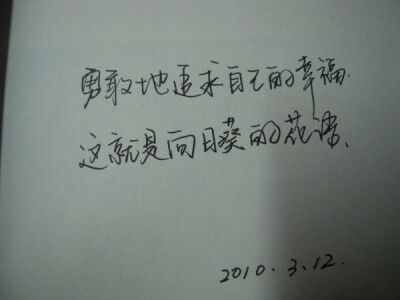 勇敢地追求自己的幸福.
这就是向日葵的花语.
2010.3.12.